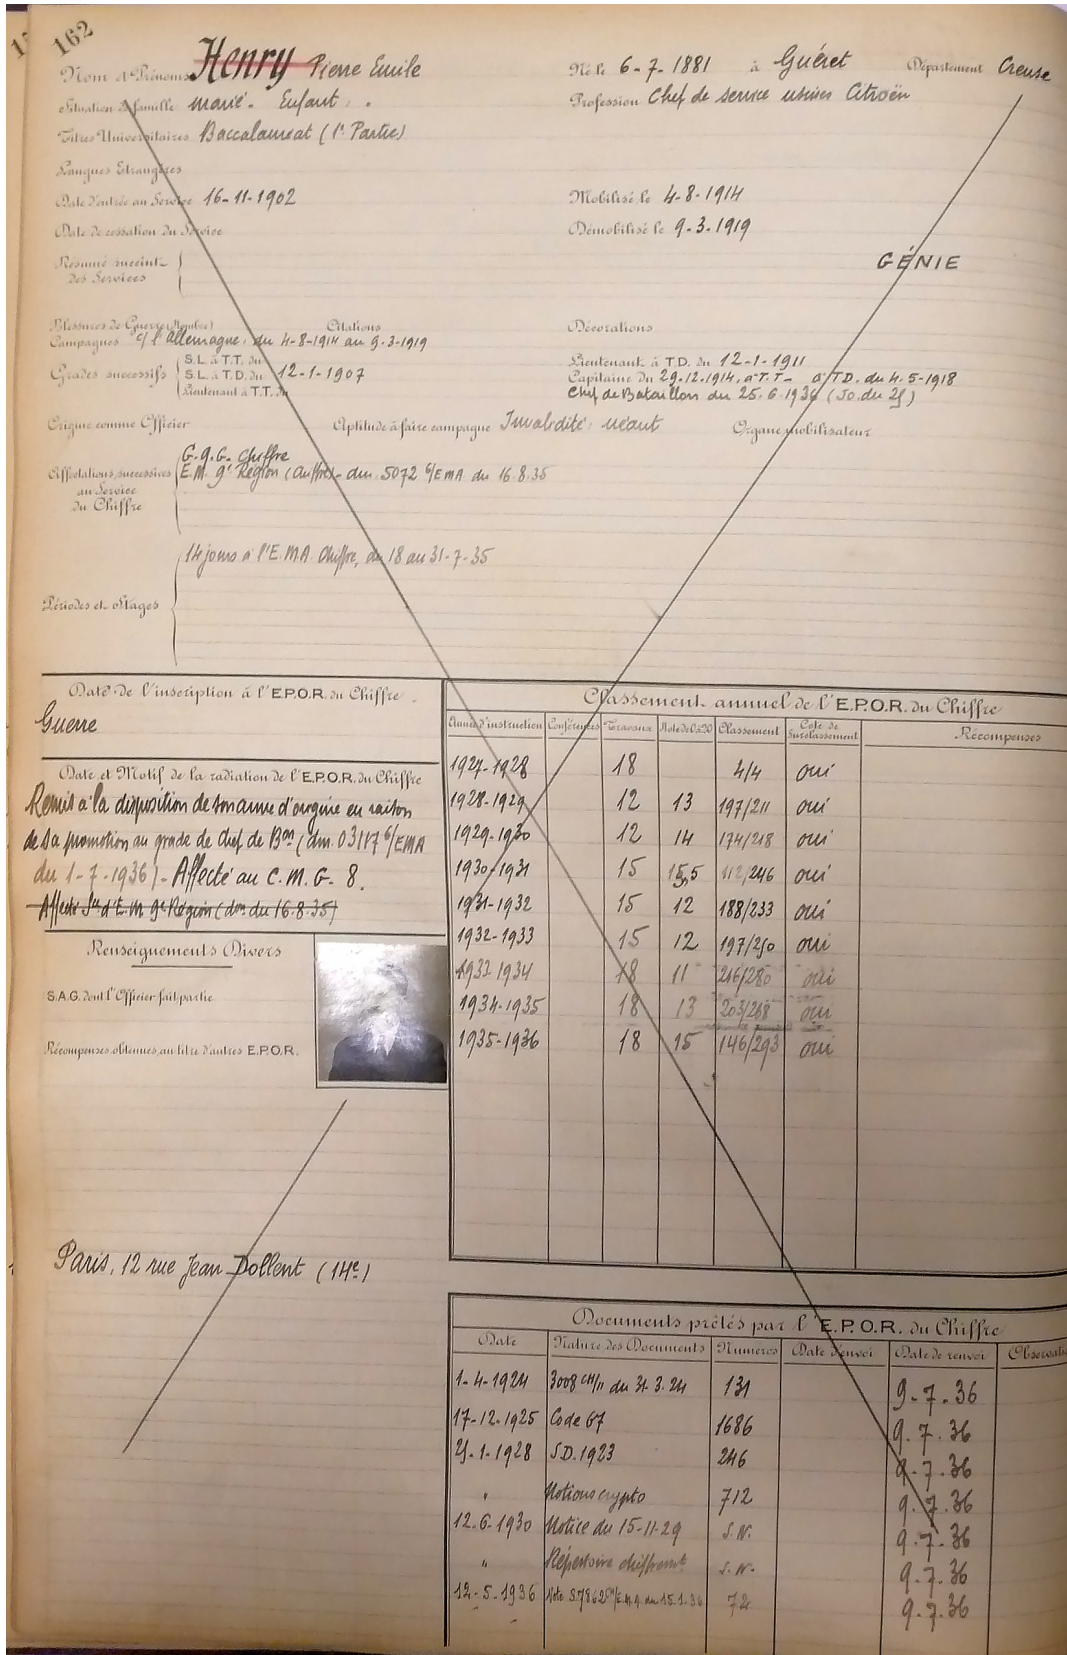 162
Nom et Prénoms Henry Pierre Emile Né le 6-7-1881 à Guéret Département Creuse
Situation de famille marié. Enfant: . Profession Chef de service usines Citroën
Titres Universitaires Baccalauréat (1e Partie)
Langues Etrangères
Date d'entrée au Service 16-11-1902 Mobilisé le 4-8-1914
Date de cessation du Service Démobilisé le 9-3-1919
Résumé succinct des Services GÉNIE
Blessures de Guerre (Nombre) Citations Décorations
Campagnes c/ l'Allemagne: du 4-8-1914 au 9-3-1919
Grades successifs
S.L. à T.T. du
S.L. à T.D. du 12-1-1907
Lieutenant à T.T. du
Lieutenant à T.D. du 12-1-1911
Capitaine du 29.12.1914, à T.T. - à T.D. du 4-5-1918
Chef de Bataillon du 25.6.1936 (JO. du 25)
Origine comme Officier Aptitude à faire campagne Invalidité: néant Organe mobilisateur
Affectations successives au Service du Chiffre
G.Q.G. Chiffre
E.M. 9e Région (Chiffre) - dm. 5072 C/EMA du 16.8.35
14 jours à l'E.M.A. Chiffre, du 18 au 31-7-35
Périodes et Stages
Date de l'inscription à l'E.P.O.R. du Chiffre
Guerre
Date et Motif de la radiation de l'E.P.O.R. du Chiffre
Remis à la disposition de son arme d'origine en raison
de sa promotion au grade de Chef de Bon (dm. 03117 C/EMA
du 1-7-1936) - Affecté au C.M.G. 8.
d'E.M. 9e Région (dm du 16.8.35)
Renseignements Divers
S.A.G. dont l'Officier fait partie
Récompenses obtenues au titre d'autres E.P.O.R.
Paris, 12 rue Jean Dolent (14e)
Classement annuel de l'E.P.O.R. du Chiffre
Année d'instruction Conférences Travaux Note de 0 à 20 Classement Cote de Surclassement Récompenses
1927-1928 18 4/4 oui
1928-1929 12 13 197/211 oui
1929-1930 12 14 174/218 oui
1930-1931 15 15,5 112/246 oui
1931-1932 15 12 188/233 oui
1932-1933 15 12 197/250 oui
1933 1934 18 11 216/280 oui
1934-1935 18 13 203/268 oui
1935-1936 18 15 146/293 oui
Documents prêtés par l'E.P.O.R. du Chiffre
Date Nature des Documents Numéros Date d'envoi Date de renvoi
1-4-1924 3008 CH/11 du 31.3.24 131 9-7-36
17-12-1925 Code 67 1686 9.7.36
25-1-1928 S.D. 1923 246 9-7-36
" Notions crypto 712 9.7.36
12.6.1930 Notice du 15-11-29 S.N. 9.7-36
" Répertoire chiffremt S.N. 9.7.36
12-5-1936 Note du 15.1.36 72 9.7.36